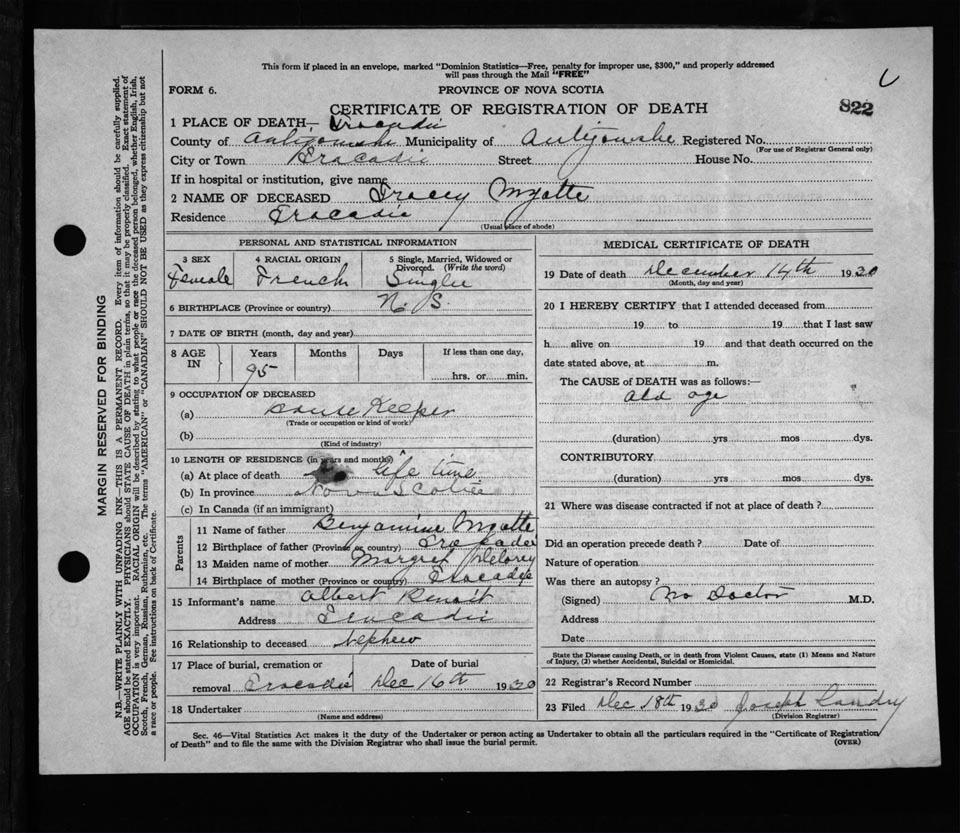 This form if placed in an envelope, marked "Dominion Statistics—Free, penalty for improper use, $300," and properly addressed
will pass through the Mail "FREE"
FORM 6. PROVINCE OF NOVA SCOTIA
CERTIFICATE OF REGISTRATION OF DEATH 822
1 PLACE OF DEATH— Tracadie
County of Antigonishe Municipality of Antigonishe Registered No.
(For use of Registrar General only)
City or Town Tracadie Street House No.
If in hospital or institution, give name
2 NAME OF DECEASED Tracey Myatte
Residence Tracadie
(Usual place of abode)
PERSONAL AND STATISTICAL INFORMATION
3 SEX 4 RACIAL ORIGIN 5 Single, Married, Widowed or
Divorced. (Write the word)
Female French Single
6 BIRTHPLACE (Province or country) N. S.
7 DATE OF BIRTH (month, day and year)
8 AGE IN Years Months Days If less than one day,
95 hrs. or min.
9 OCCUPATION OF DECEASED
(a) House Keeper
(Trade or occupation or kind of work)
(b)
(Kind of industry)
10 LENGTH OF RESIDENCE (in years and months)
(a) At place of death life time
(b) In province Nova Scotia
(c) In Canada (if an immigrant)
Parents
11 Name of father Benjamine Myatte
12 Birthplace of father (Province or country) Tracadie
13 Maiden name of mother Margret Delorey
14 Birthplace of mother (Province or country) Tracadie
15 Informant's name Albert Benoit
Address Tracadie
16 Relationship to deceased Nephew
17 Place of burial, cremation or Date of burial
removal Tracadie Dec 16th 1930
18 Undertaker
(Name and address)
MEDICAL CERTIFICATE OF DEATH
19 Date of death December 14th 1930
(Month, day and year)
20 I HEREBY CERTIFY that I attended deceased from
19 to 19 that I last saw
h alive on 19 and that death occurred on the
date stated above, at m.
The CAUSE of DEATH was as follows:—
old age
(duration) yrs mos dys.
CONTRIBUTORY
(duration) yrs mos dys.
21 Where was disease contracted if not at place of death?
Did an operation precede death? Date of
Nature of operation
Was there an autopsy?
(Signed) No Doctor M.D.
Address
Date
State the Disease causing Death, or in death from Violent Causes, state (1) Means and Nature
of Injury, (2) whether Accidental, Suicidal or Homicidal.
22 Registrar's Record Number
23 Filed Dec 18th 1930 Joseph Landry
(Division Registrar)
Sec. 46—Vital Statistics Act makes it the duty of the Undertaker or person acting as Undertaker to obtain all the particulars required in the "Certificate of Registration
of Death" and to file the same with the Division Registrar who shall issue the burial permit. (OVER)
MARGIN RESERVED FOR BINDING
N.B.—WRITE PLAINLY WITH UNFADING INK—THIS IS A PERMANENT RECORD. Every item of information should be carefully supplied.
AGE should be stated EXACTLY. PHYSICIANS should STATE CAUSE OF DEATH in plain terms, so that it may be properly classified. Exact statement of
OCCUPATION is very important. RACIAL ORIGIN will be described by stating to what people or race the deceased person belonged, whether English, Irish,
Scotch, French, German, Russian, Ruthenian, etc. The terms "AMERICAN" or "CANADIAN" SHOULD NOT BE USED as they express citizenship but not
a race or people. See instructions on back of Certificate.